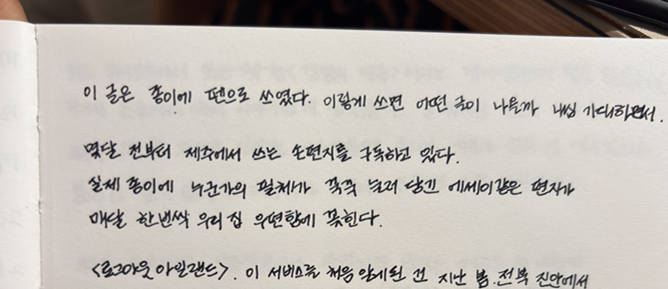 이 글은 종이에 펜으로 쓰였다. 이렇게 쓰면 어떤 글이 나올까 내심 기대하면서.
몇달 전부터 제주에서 쓰는 손편지를 구독하고 있다.
실제 종이에 누군가의 필체가 꾹꾹 눌러 담긴 에세이같은 편지가
매달 한번씩 우리 집 우편함에 꽂힌다.
<로그아웃 아일랜드>. 이 서비스를 처음 알게된 건 지난 봄. 전북 진안에서